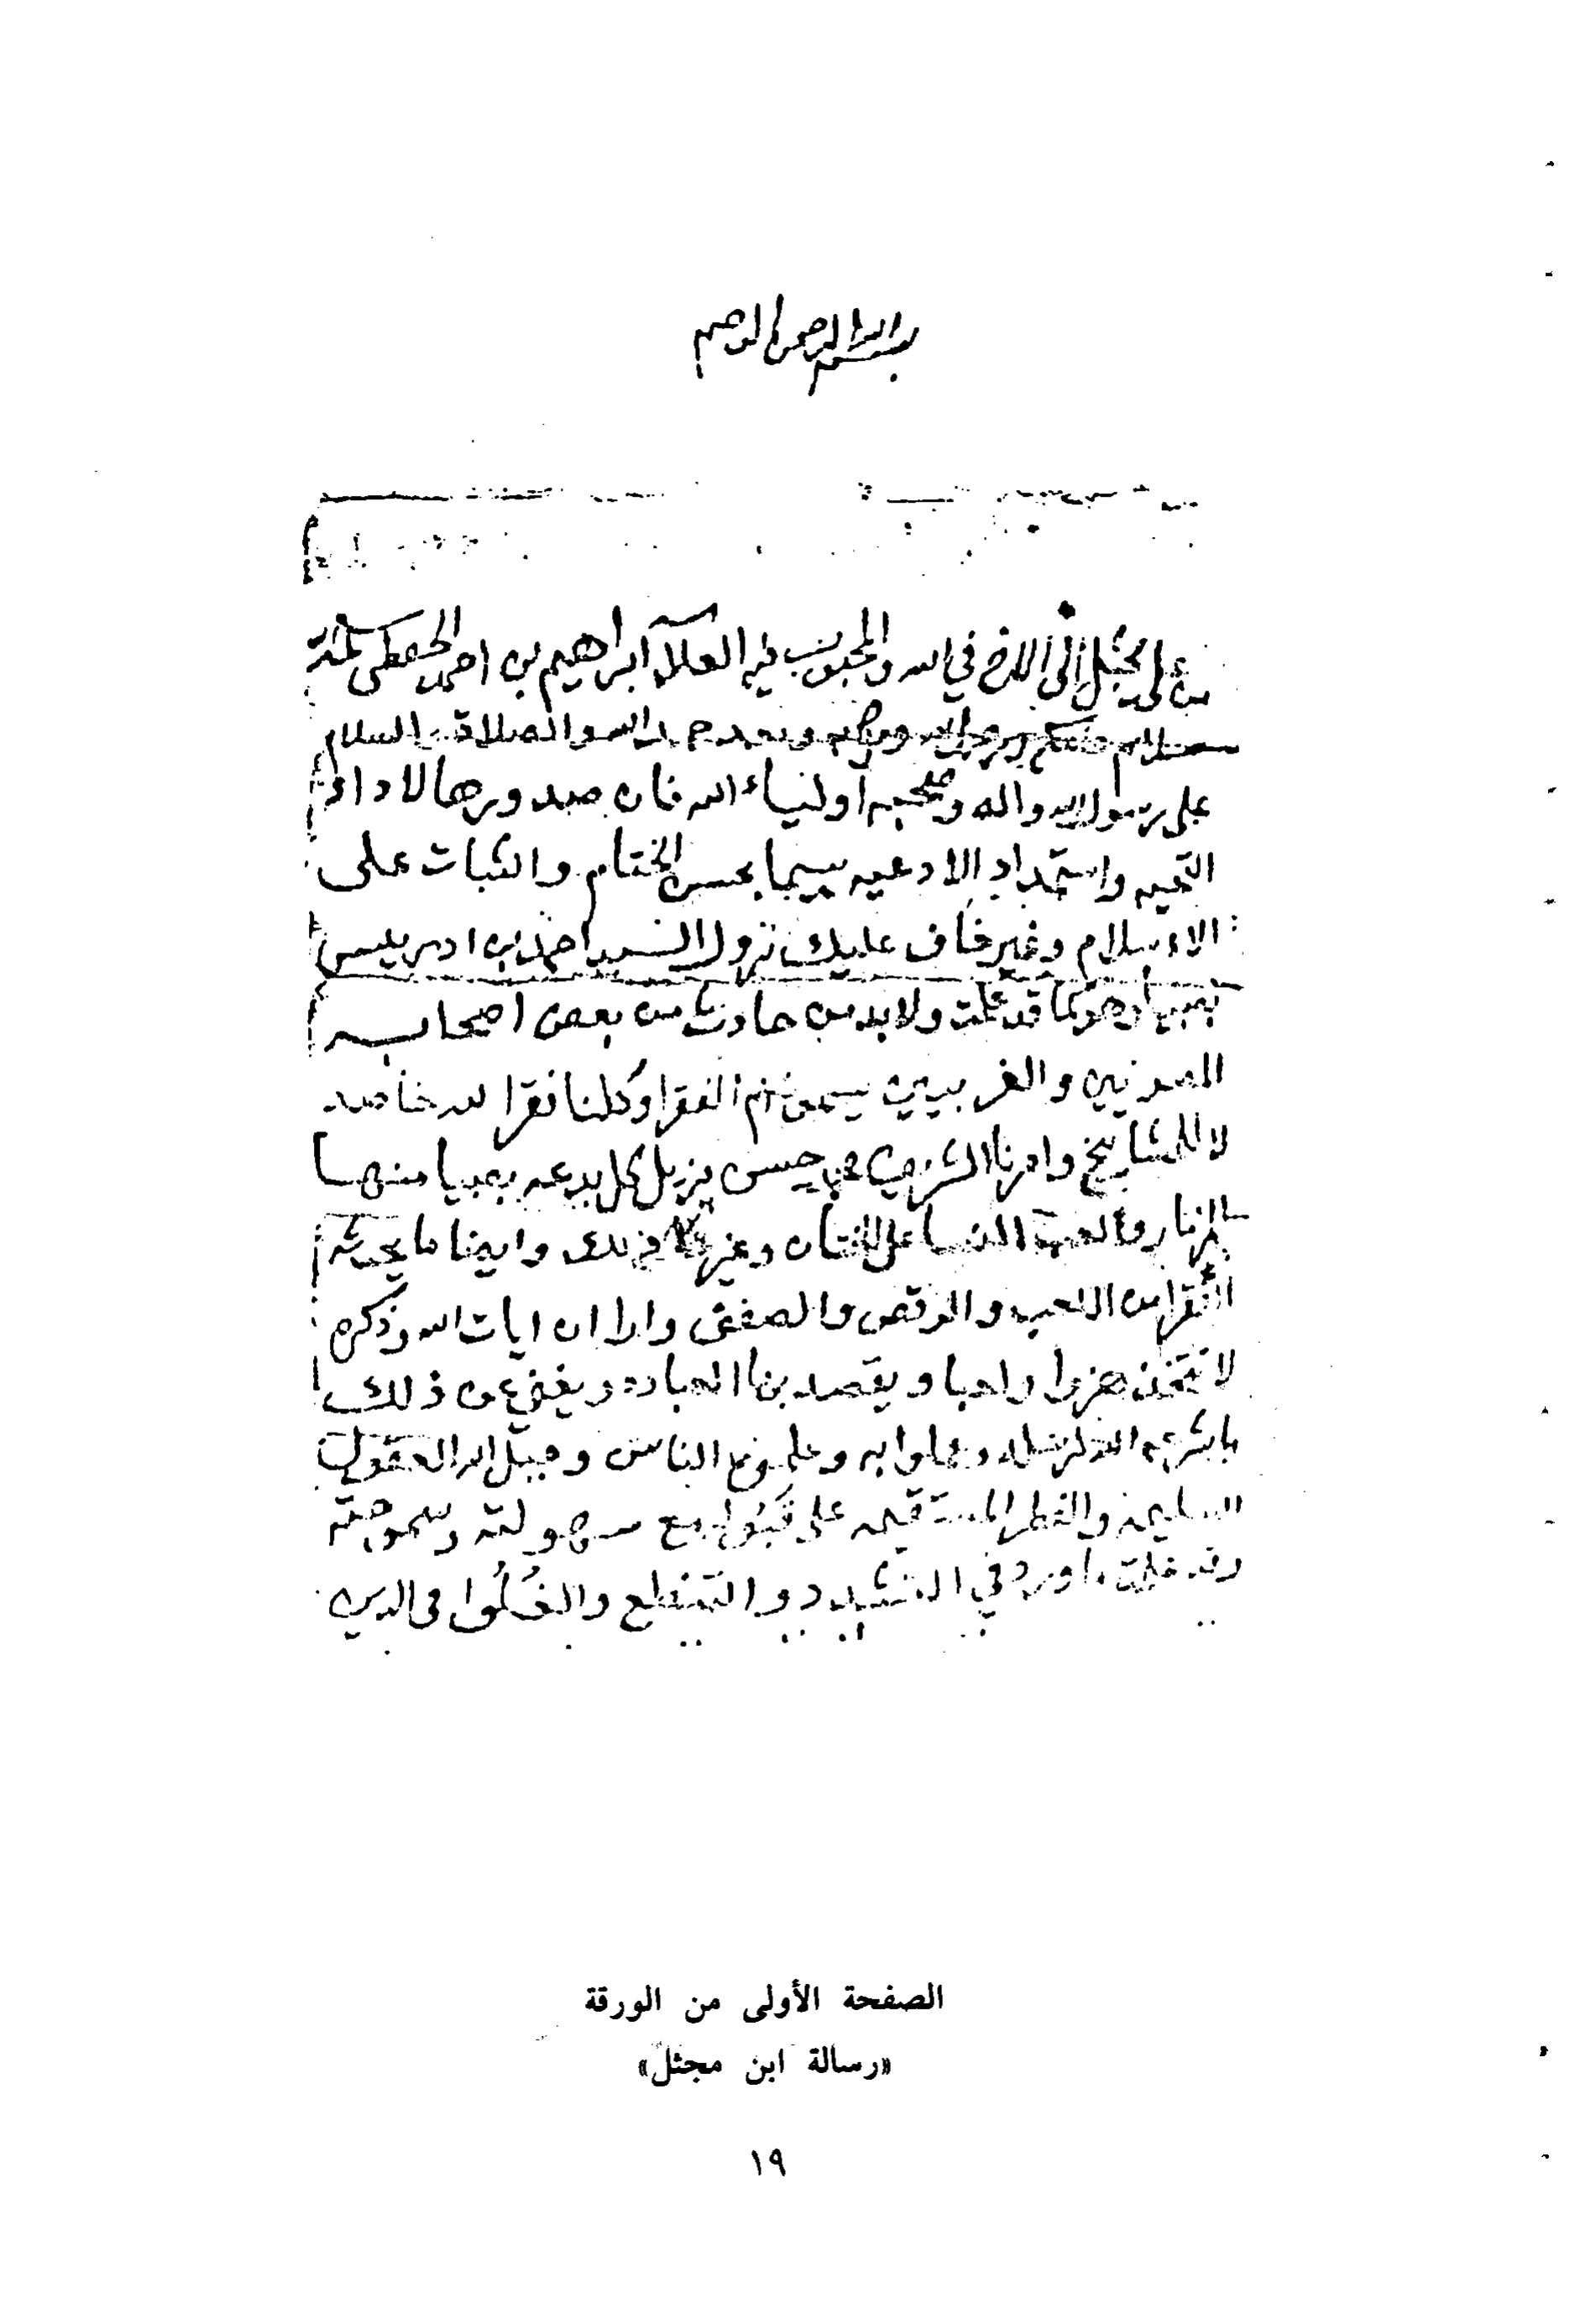 بسم الله الرحمن الرحيم
من علي بن مجثل إلى الاخ في الله والمحبوب فيه العلامة ابراهيم بن احمد الحفظي سلمه
سلام عليكم ورحمة الله وبركاته وبعد حمد الله والصلاة والسلام
على رسول الله واله وصحبه اولياء الله فان صدورها لاداء
التحيه واستمداد الادعيه سيما بحسن الختام والثبات على
الاسلام وغير خاف عليك نزول السيد احمد بن ادريس
بصبيا وهو كما قد علمت ولا بد من حادث من بعض اصحابه
الصوفيين والغربيين يسمون الفقرا وكلنا فقرا لله خاصه
لا للمشايخ وامرنا الشريف حسن يزيل كل بدعه بصبيا منها
الزنار ولعب النسا على الختان وغير ذلك وايضا ما يحدثه
الفقرا من اللعب والرقص والصفق وارا ان ايات الله وذكره
لا تتخذ هزوا ولعبا ويقصد بها العباده ويغني عن ذلك
ما شرعه الله لرسوله وعلموه الناس وجبل الله العقول
السليمه والفطر المستقيمه على قبوله مع سهولته وسموحته
وقد علمت ما ورد في التشديد والتنطع والغُلُوا في الدين
الصفحة الأولى من الورقة
«رسالة ابن مجثل»
١٩